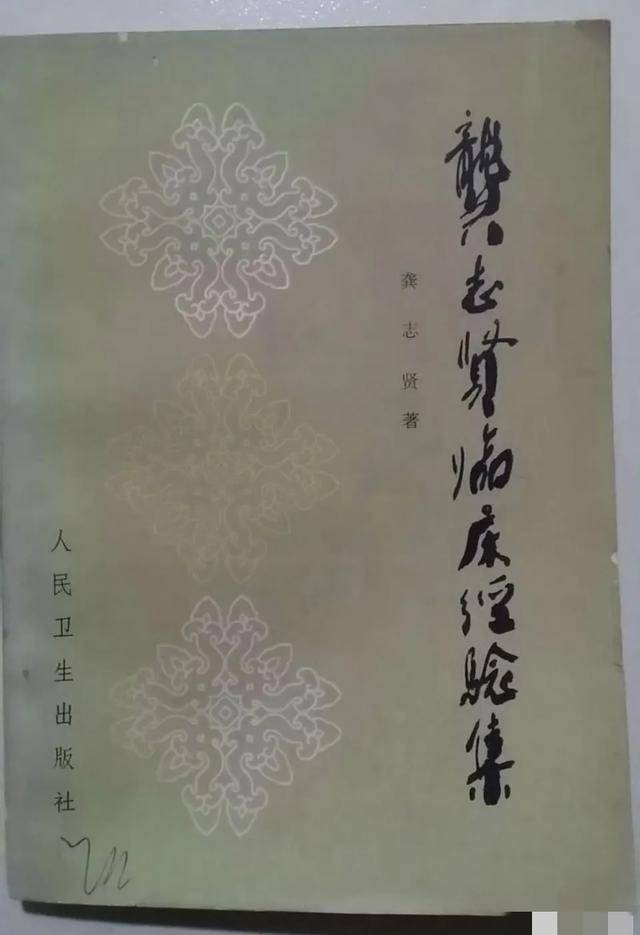 龔志賢临床经验集
龚志贤著
人民卫生出版社